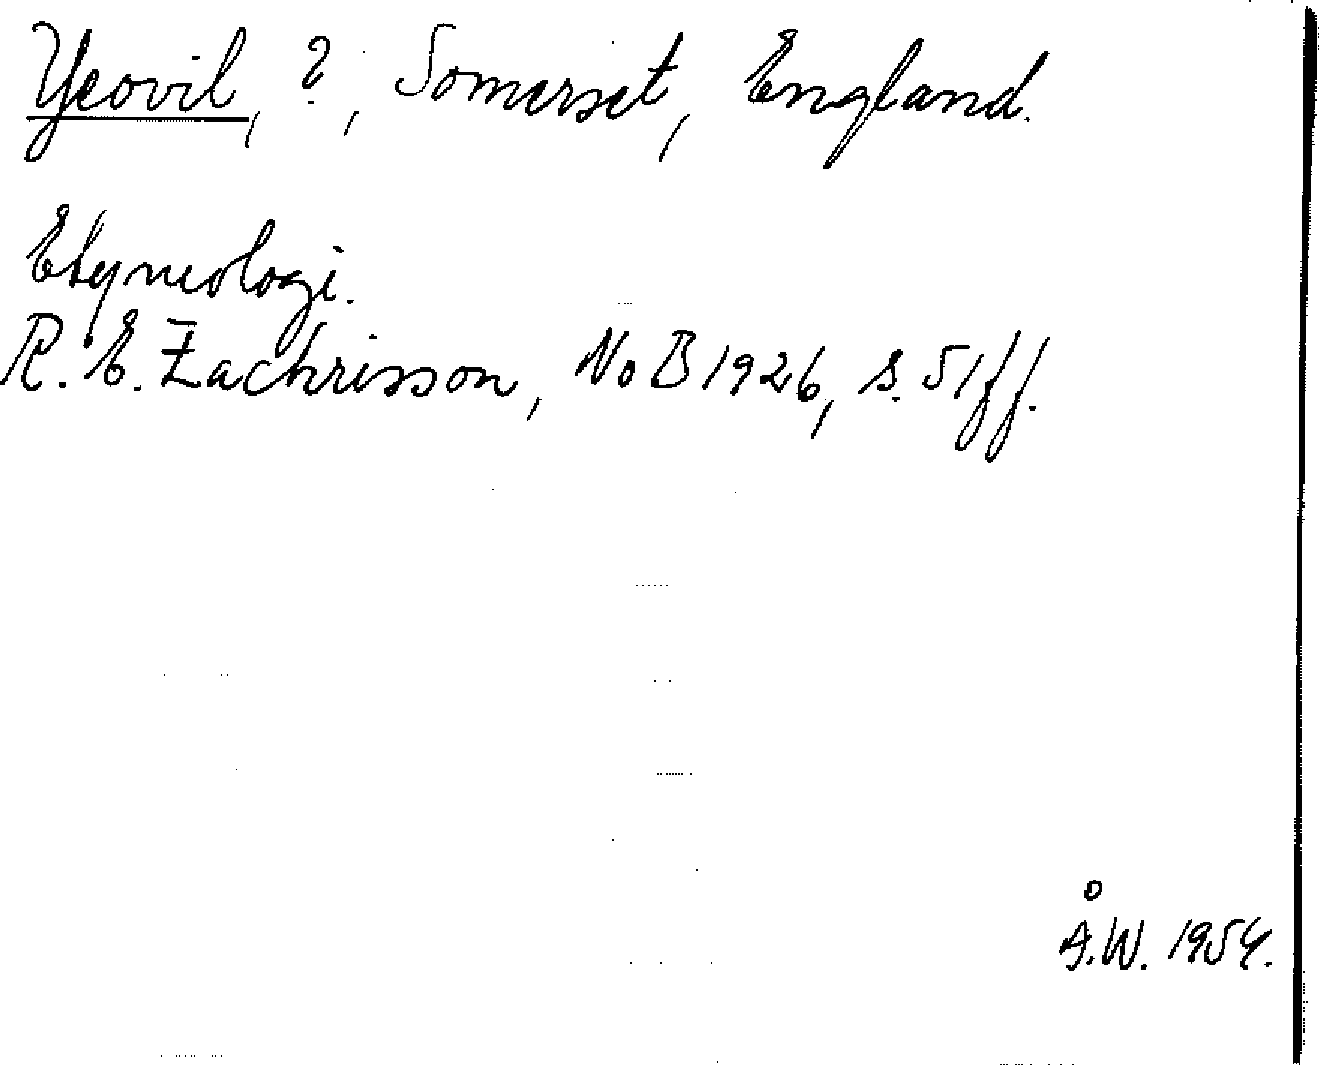 Yeovil, ?, Somerset, England.
Etymologi.
R. E. Zachrisson, NoB 1926, s. 51ff.
Å.W. 1954.